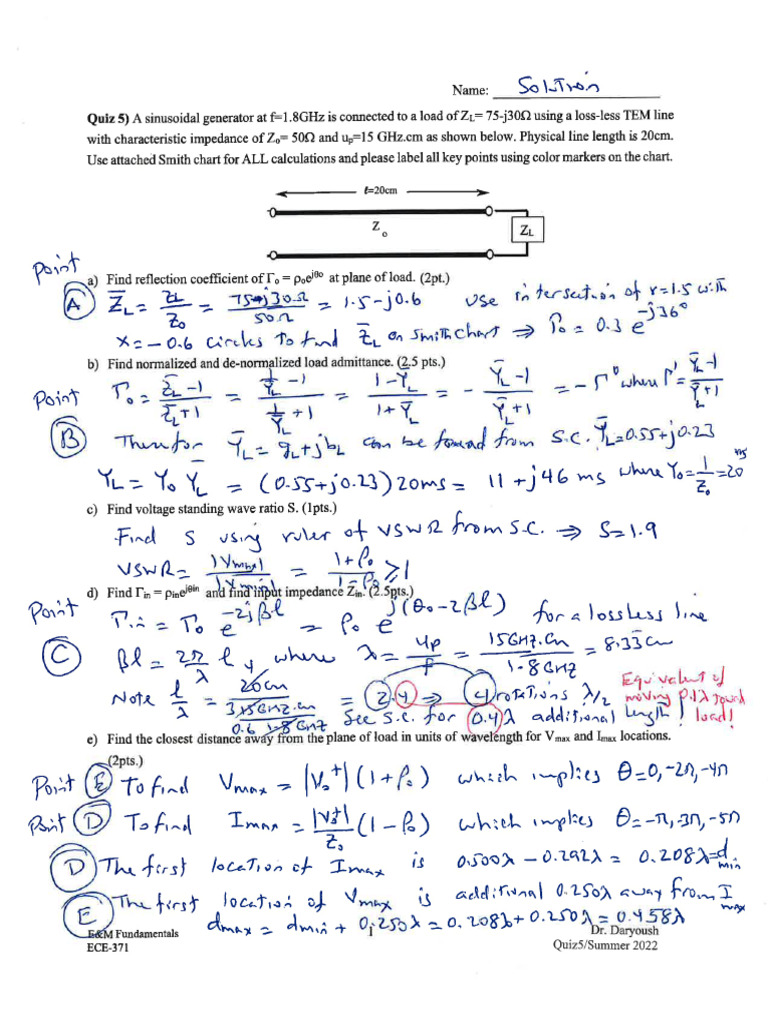 Name: Solution
Quiz 5) A sinusoidal generator at f=1.8GHz is connected to a load of Z_L= 75-j30Ω using a loss-less TEM line
with characteristic impedance of Z_o= 50Ω and u_p=15 GHz.cm as shown below. Physical line length is 20cm.
Use attached Smith chart for ALL calculations and please label all key points using color markers on the chart.
ℓ=20cm
Z_o
Z_L
Point
a) Find reflection coefficient of Γ_o = ρ_o e^{jθo} at plane of load. (2pt.)
(A) Z̄_L = Z_L/Z_0 = 75-j30Ω/50Ω = 1.5-j0.6 use intersection of r=1.5 with
x=-0.6 circles to find Z̄_L on Smith chart ⇒ Γ_0 = 0.3 e^{-j36°}
b) Find normalized and de-normalized load admittance. (2.5 pts.)
Point
(B) Γ_0 = (Z̄_L-1)/(Z̄_L+1) = (1/Ȳ_L -1)/(1/Ȳ_L +1) = (1-Ȳ_L)/(1+Ȳ_L) = -(Ȳ_L-1)/(Ȳ_L+1) = -Γ' where Γ' = (Ȳ_L-1)/(Ȳ_L+1)
Therfor Ȳ_L = g_L+jb_L can be found from S.C. Ȳ_L=0.55+j0.23
Y_L = Y_0 Ȳ_L = (0.55+j0.23)20ms = 11+j46 ms where Y_0=1/Z_0=20 ms
c) Find voltage standing wave ratio S. (1pts.)
Find S using ruler of VSWR from S.C. ⇒ S=1.9
VSWR = |V_max|/|V_min| = (1+ρ_0)/(1-ρ_0) ≥ 1
d) Find Γ_in = ρ_in e^{jθin} and find input impedance Z_in. (2.5pts.)
Point
(C) Γ_in = Γ_0 e^{-2jβl} = ρ_0 e^{j(θ_0-2βl)} for a lossless line
βl = 2π/λ l, where λ = u_p/f = 15GHz.cm/1.8GHz = 8.33cm
Note l/λ = 20cm/(15GHz.cm/1.8GHz) = 2.4 ⇒ 4 rotations λ/2
See S.C. for 0.4λ additional length!
Equivalent of
moving 0.1λ toward
load!
e) Find the closest distance away from the plane of load in units of wavelength for V_max and I_max locations.
(2pts.)
Point (E) To find V_max = |V_0^+|(1+ρ_0) which implies θ=0,-2π,-4π
Point (D) To find I_max = |V_0^+|/Z_0 (1-ρ_0) which implies θ=-π,-3π,-5π
(D) The first location of I_max is 0.500λ-0.292λ = 0.208λ=d_min
(E) The first location of V_max is additional 0.250λ away from I_max
d_max = d_min + 0.250λ = 0.208λ+0.250λ=0.458λ
E&M Fundamentals
ECE-371
1
Dr. Daryoush
Quiz5/Summer 2022